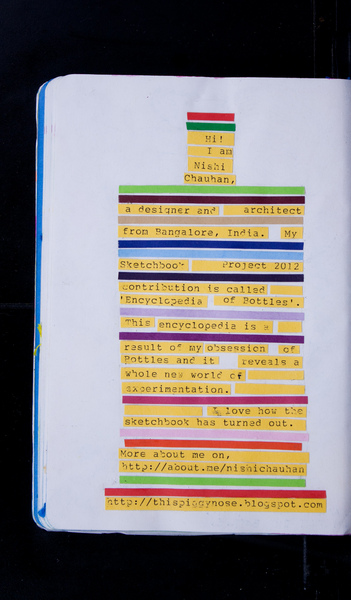 Hi!
I am
Nishi
Chauhan,
a designer and architect
from Bangalore, India. My
Sketchbook Project 2012
contribution is called
'Encyclopedia of Bottles'.
This encyclopedia is a
result of my obsession of
Bottles and it reveals a
whole new world of
experimentation.
I love how the
sketchbook has turned out.
More about me on,
http://about.me/nishichauhan
http://thispiggynose.blogspot.com